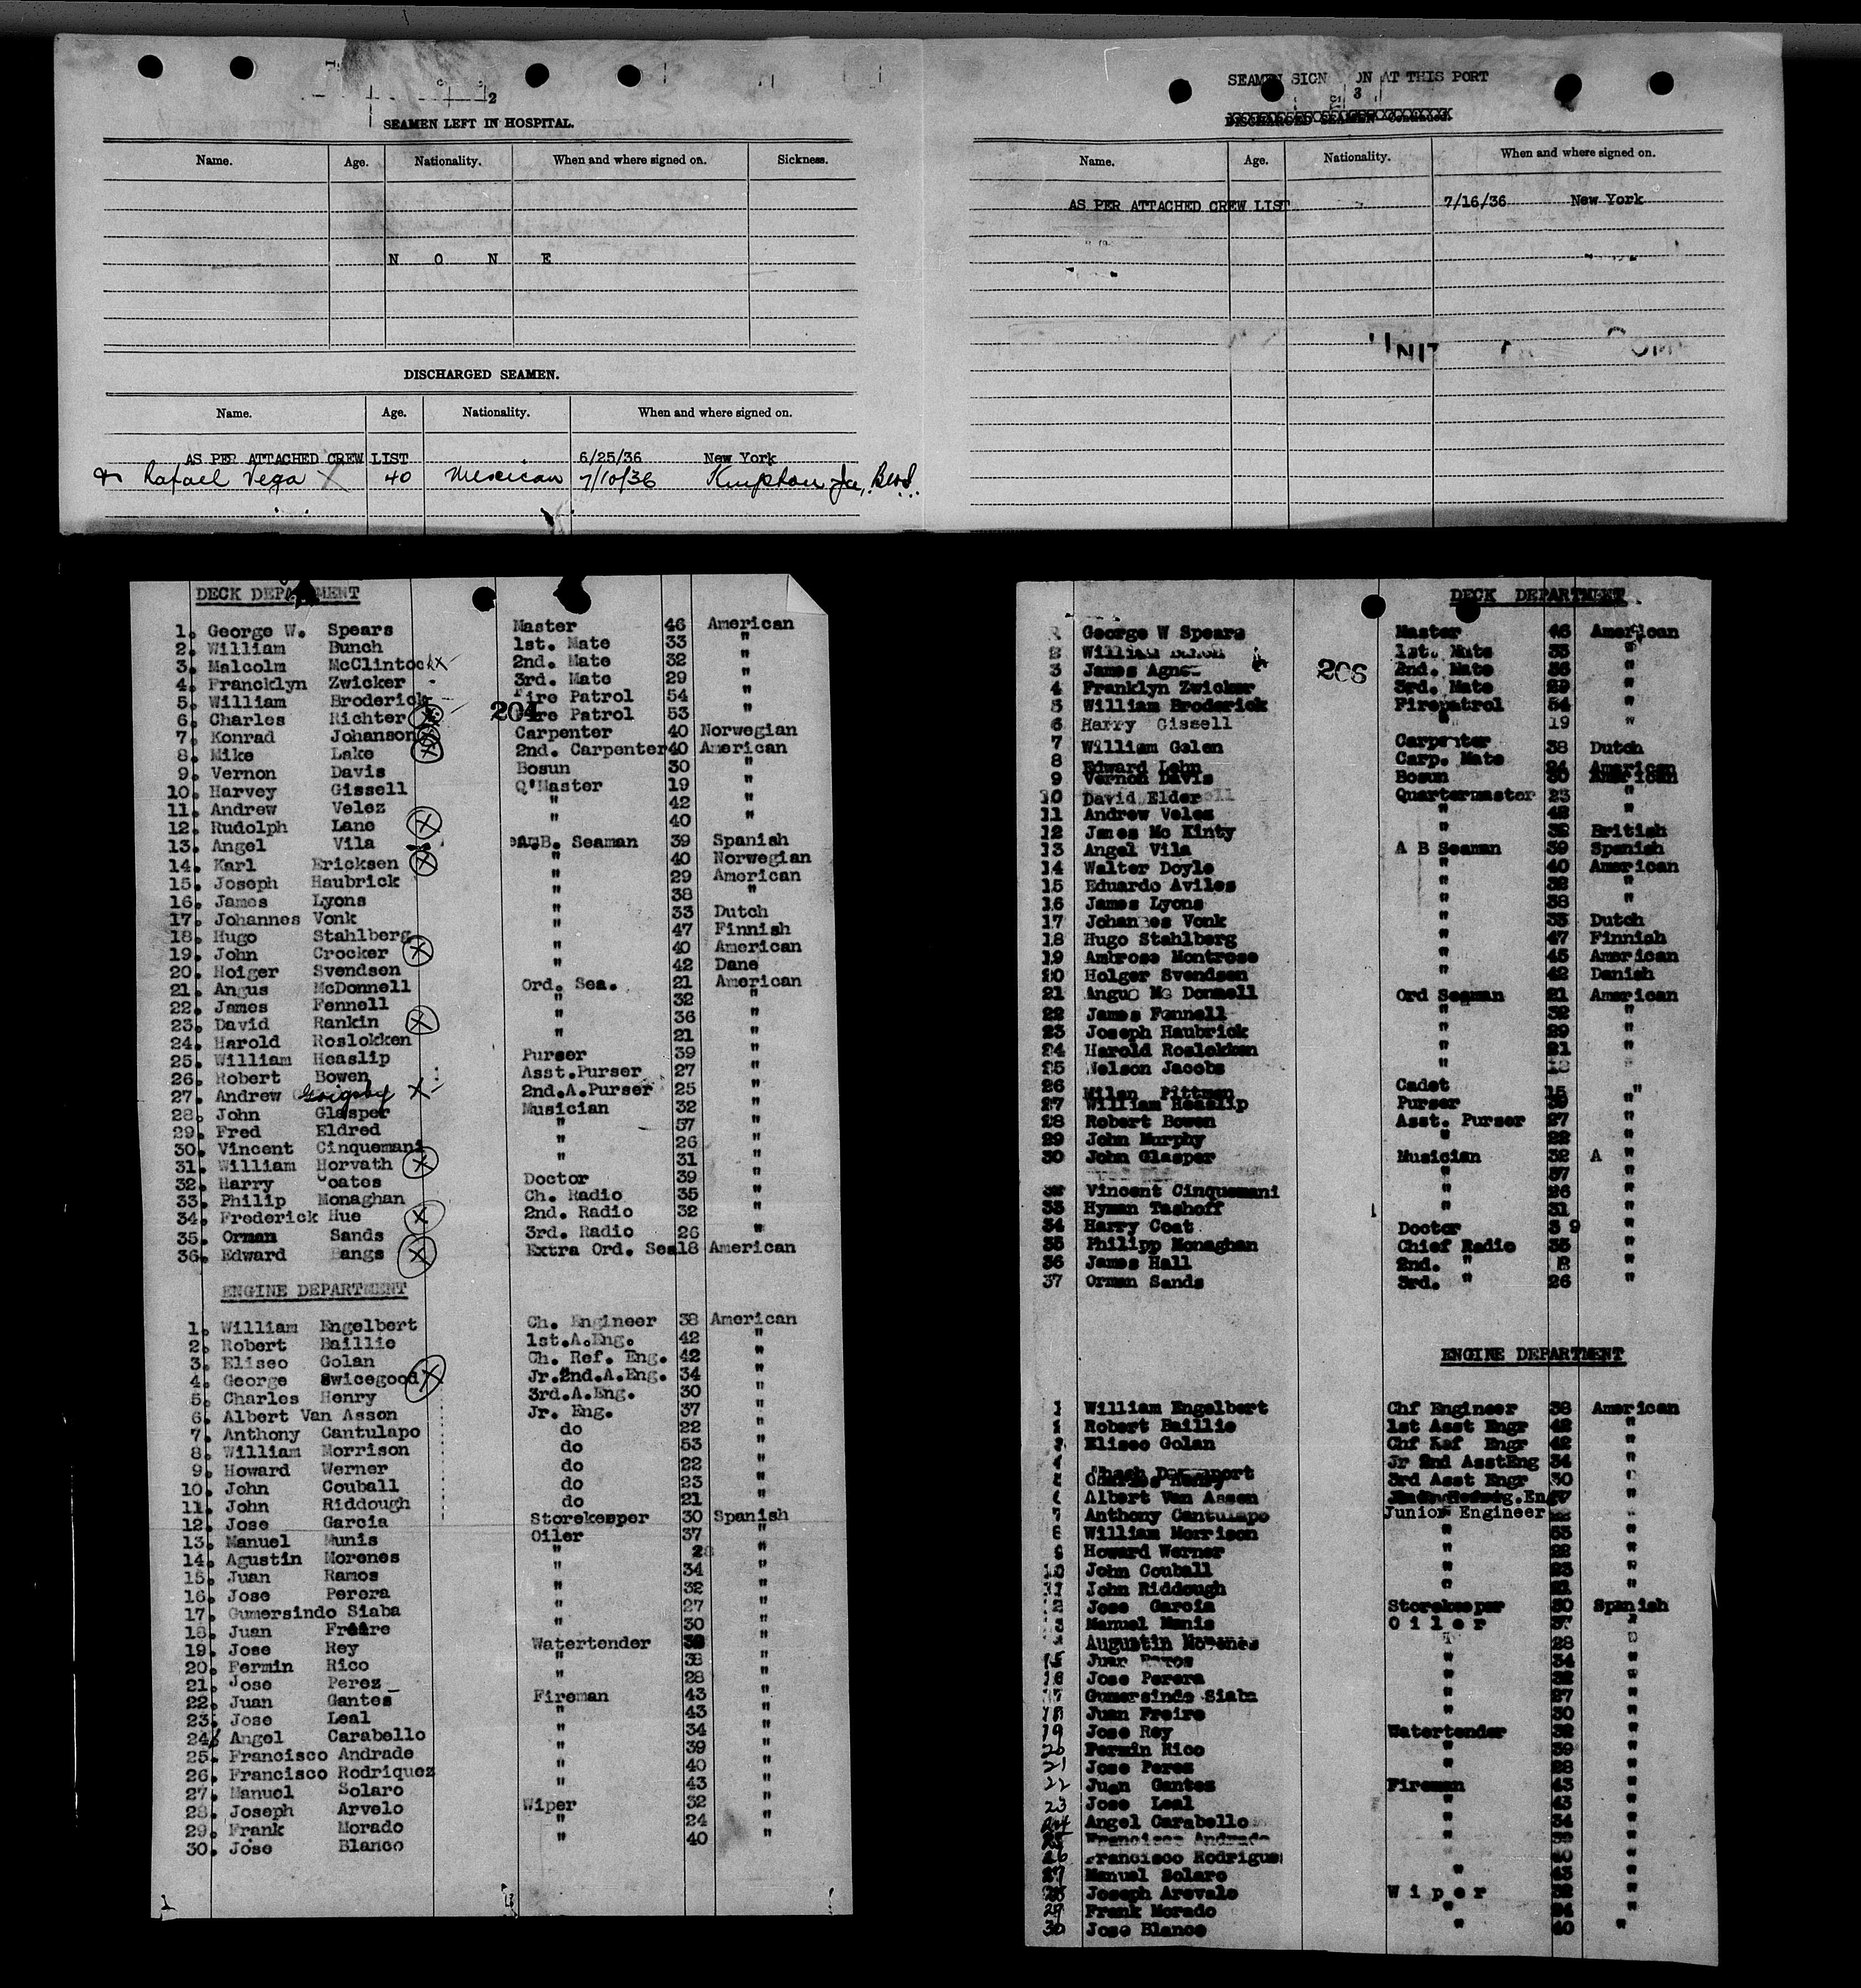 2
SEAMEN LEFT IN HOSPITAL.
Name. Age. Nationality. When and where signed on. Sickness.
N O N E
DISCHARGED SEAMEN.
Name. Age. Nationality. When and where signed on.
AS PER ATTACHED CREW LIST 6/25/36 New York
Rafael Vega X 40 Mexican 7/10/36
SEAMEN SIGN ON AT THIS PORT
3
DISCHARGED SEAMEN Continued.
Name. Age. Nationality. When and where signed on.
AS PER ATTACHED CREW LIST 7/16/36 New York
DECK DEPARTMENT
204
1. George W. Spears Master 46 American
2. William Bunch 1st. Mate 33 "
3. Malcolm McClintock X 2nd. Mate 32 "
4. Francklyn Zwicker 3rd. Mate 29 "
5. William Broderick Fire Patrol 54 "
6. Charles Richter X Fire Patrol 53 "
7. Konrad Johanson X Carpenter 40 Norwegian
8. Mike Lake X 2nd. Carpenter 40 American
9. Vernon Davis Bosun 30 "
10. Harvey Gissell Q'Master 19 "
11. Andrew Velez " 42 "
12. Rudolph Lane X " 40 "
13. Angel Vila A.B. Seaman 39 Spanish
14. Karl Ericksen X " 40 Norwegian
15. Joseph Haubrick " 29 American
16. James Lyons " 38 "
17. Johannes Vonk " 33 Dutch
18. Hugo Stahlberg " 47 Finnish
19. John Crocker X " 40 American
20. Holger Svendsen " 42 Dane
21. Angus McDonnell Ord. Sea. 21 American
22. James Fennell " 32 "
23. David Rankin X " 36 "
24. Harold Roslokken " 21 "
25. William Heaslip Purser 39 "
26. Robert Bowen Asst.Purser 27 "
27. Andrew Grigsby X 2nd.A.Purser 25 "
28. John Glasper Musician 32 "
29. Fred Eldred " 57 "
30. Vincent Cinquemani " 26 "
31. William Horvath X " 31 "
32. Harry Coates Doctor 39 "
33. Philip Monaghan Ch. Radio 35 "
34. Frederick Hue X 2nd. Radio 32 "
35. Orman Sands 3rd. Radio 26 "
36. Edward Bangs X Extra Ord. Sea 18 American
ENGINE DEPARTMENT
1. William Engelbert Ch. Engineer 38 American
2. Robert Baillie 1st.A.Eng. 42 "
3. Eliseo Golan Ch. Ref. Eng. 42 "
4. George Swicegood X Jr.2nd.A.Eng. 34 "
5. Charles Henry 3rd.A.Eng. 30 "
6. Albert Van Asson Jr. Eng. 37 "
7. Anthony Cantulapo do 22 "
8. William Morrison do 53 "
9. Howard Werner do 22 "
10. John Couball do 23 "
11. John Riddough do 21 "
12. Jose Garcia Storekeeper 30 Spanish
13. Manuel Munis Oiler 37 "
14. Agustin Morenes " 28 "
15. Juan Ramos " 34 "
16. Jose Perera " 32 "
17. Gumersindo Siaba " 27 "
18. Juan Freire " 30 "
19. Jose Rey Watertender "
20. Fermin Rico " 38 "
21. Jose Perez " 28 "
22. Juan Gantes Fireman 43 "
23. Jose Leal " 43 "
24. Angel Carabello " 34 "
25. Francisco Andrade " 39 "
26. Francisco Rodriquez " 40 "
27. Manuel Solaro " 43 "
28. Joseph Arvelo Wiper 32 "
29. Frank Morado " 24 "
30. Jose Blanco " 40 "
DECK DEPARTMENT
206
George W Spears Master 46 American
2 William 1st. Mate 33 "
3 James 2nd. Mate 36 "
4 Franklyn Zwicker 3rd. Mate 29 "
5 William Broderick Firepatrol 54 "
6 Harry Gissell " 19 "
7 William Golen Carpenter 38 Dutch
8 Edward Lehn Carp. Mate 24 American
9 Vernon Davis Bosun 30 American
10 David Elder Quartermaster 23 "
11 Andrew Veles " 42 "
12 James Mc Kinty " 32 British
13 Angel Vila A B Seaman 39 Spanish
14 Walter Doyle " 40 American
15 Eduardo Aviles " 32 "
16 James Lyons " 38 "
17 Johannes Vonk " 33 Dutch
18 Hugo Stahlberg " 47 Finnish
19 Ambrose Montrose " 45 American
20 Holger Svendsen " 42 Danish
21 Angus Mc Donnell Ord Seaman 21 American
22 James Fennell " 32 "
23 Joseph Haubrick " 29 "
24 Harold Roslokken " 21 "
25 Nelson Jacobs " "
26 Milan Pittman Cadet 15 "
27 William Heaslip Purser 39 "
28 Robert Bowen Asst. Purser 27 "
29 John Murphy " 22 "
30 John Glasper Musician 32 A "
" 57 "
32 Vincent Cinquemani " 26 "
33 Hyman Tashoff " 31 "
34 Harry Coat Doctor 3 9 "
35 Philipp Monaghan Chief Radio 35 "
36 James Hall 2nd. " "
37 Orman Sands 3rd. " 26 "
ENGINE DEPARTMENT
1 William Engelbert Chf Engineer 38 American
Robert Baillie 1st Asst Engr 42 "
Eliseo Golan Chf Ref Engr 42 "
4 Jr 2nd AsstEng 34 "
Charles Henry 3rd Asst Engr 30 "
Albert Van Assen "
7 Anthony Cantulapo Junior Engineer 22 "
8 William Morrison " 53 "
9 Howard Werner " 22 "
10 John Couball " 23 "
11 John Riddough " 21 "
12 Jose Garcia Storekeeper 30 Spanish
Manuel Munis O i l e r 37 "
Augustin Morenes " 28 "
15 Juan Ramos " 34 "
16 Jose Perera " 32 "
17 Gumersindo Siaba " 27 "
18 Juan Freire " 30 "
19 Jose Rey Watertender 32 "
20 Fermin Rico " 39 "
21 Jose Peres " 28 "
22 Juan Gantes Fireman 43 "
23 Jose Leal " 43 "
24 Angel Carabello " 34 "
25 Francisco Andrade " 39 "
26 Francisco Rodrigues " 40 "
27 Manuel Solaro " 43 "
28 Joseph Arevalo W i p e r 32 "
29 Frank Morado " 24 "
30 Jose Blanco " 40 "